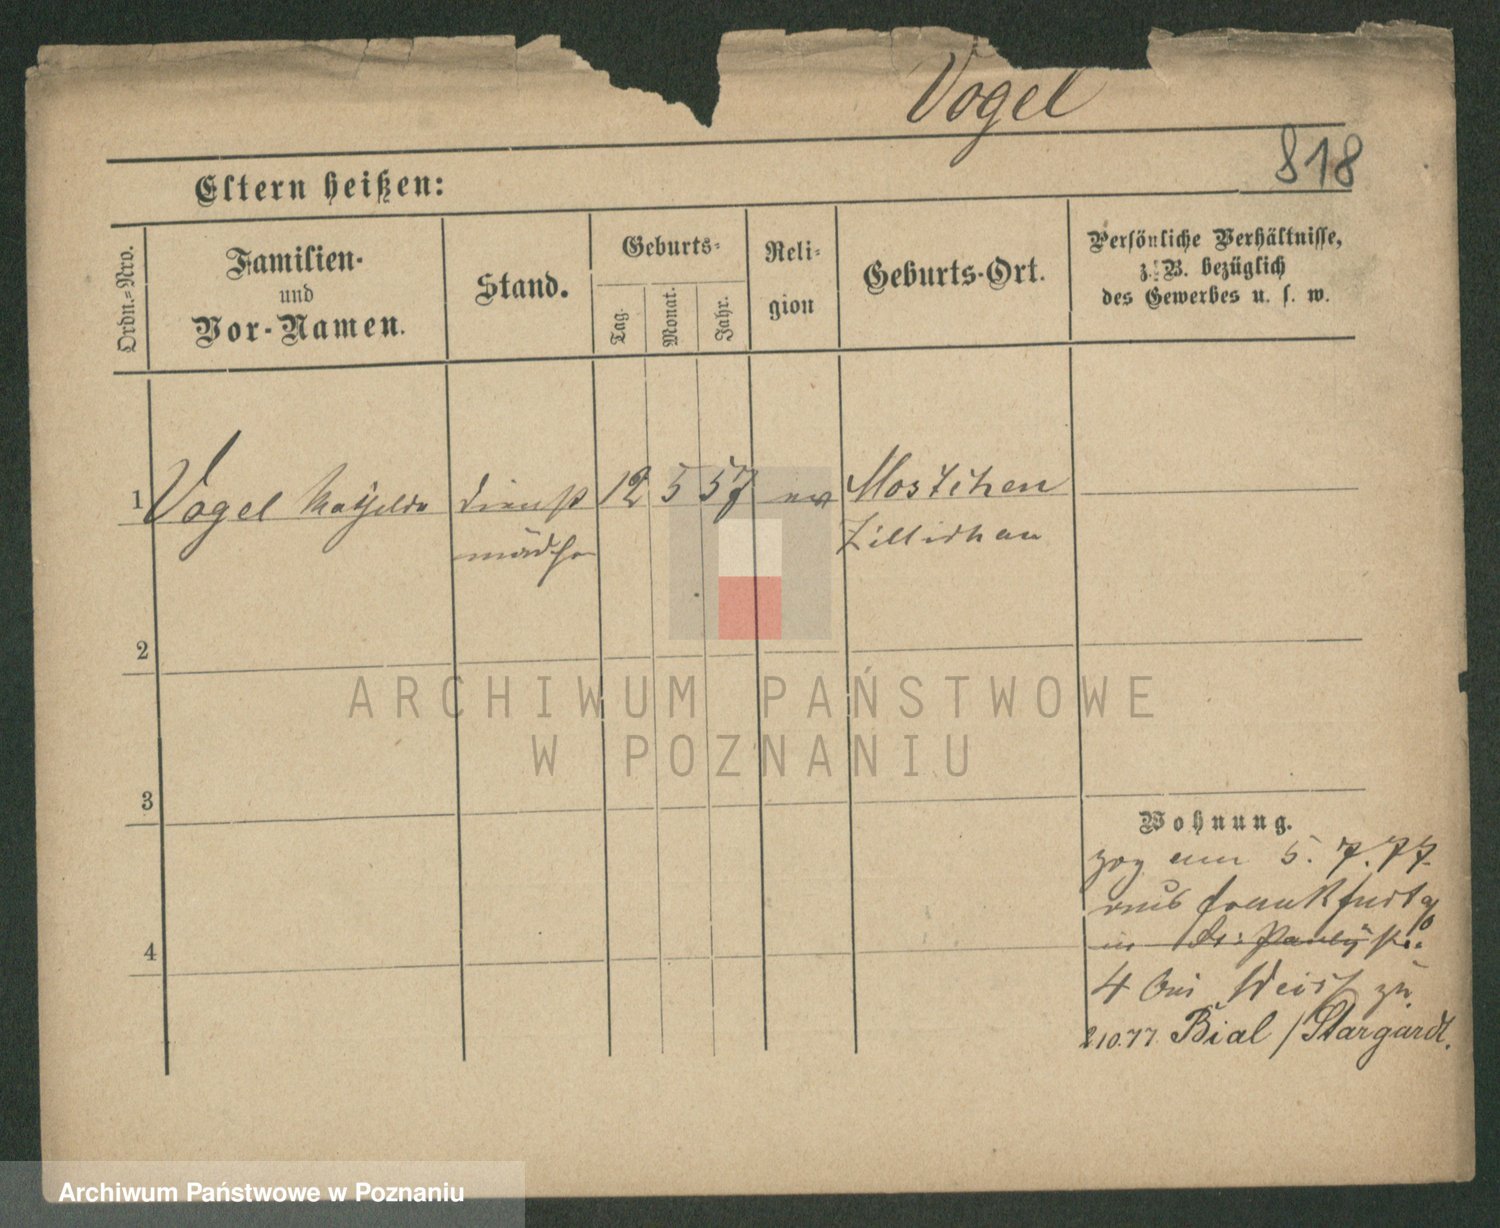 Vogel
818
Eltern heißen:
Ordn.=Nro.
Familien-
und
Vor-Namen.
Stand.
Geburts=
Tag.
Monat.
Jahr.
Reli-
gion
Geburts-Ort.
Persönliche Verhältnisse,
z. B. bezüglich
des Gewerbes u. s. w.
1 Vogel dienst 12 5 57 ev
mädch
2
3
Wohnung.
zog am 5. 7. 77.
aus Frankfurt
4
4 bei zu
2.10.77. Bial / Stargardt.
ARCHIWUM PAŃSTWOWE
W POZNANIU
Archiwum Państwowe w Poznaniu